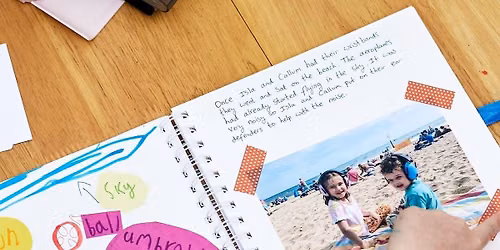 Once Isla and Callum had their wristbands
they went and sat on the beach. The aeroplanes
had already started flying in the sky. It was
very noisy so Isla and Callum put on their ear
defenders to help with the noise.
sky
ball
umbrella